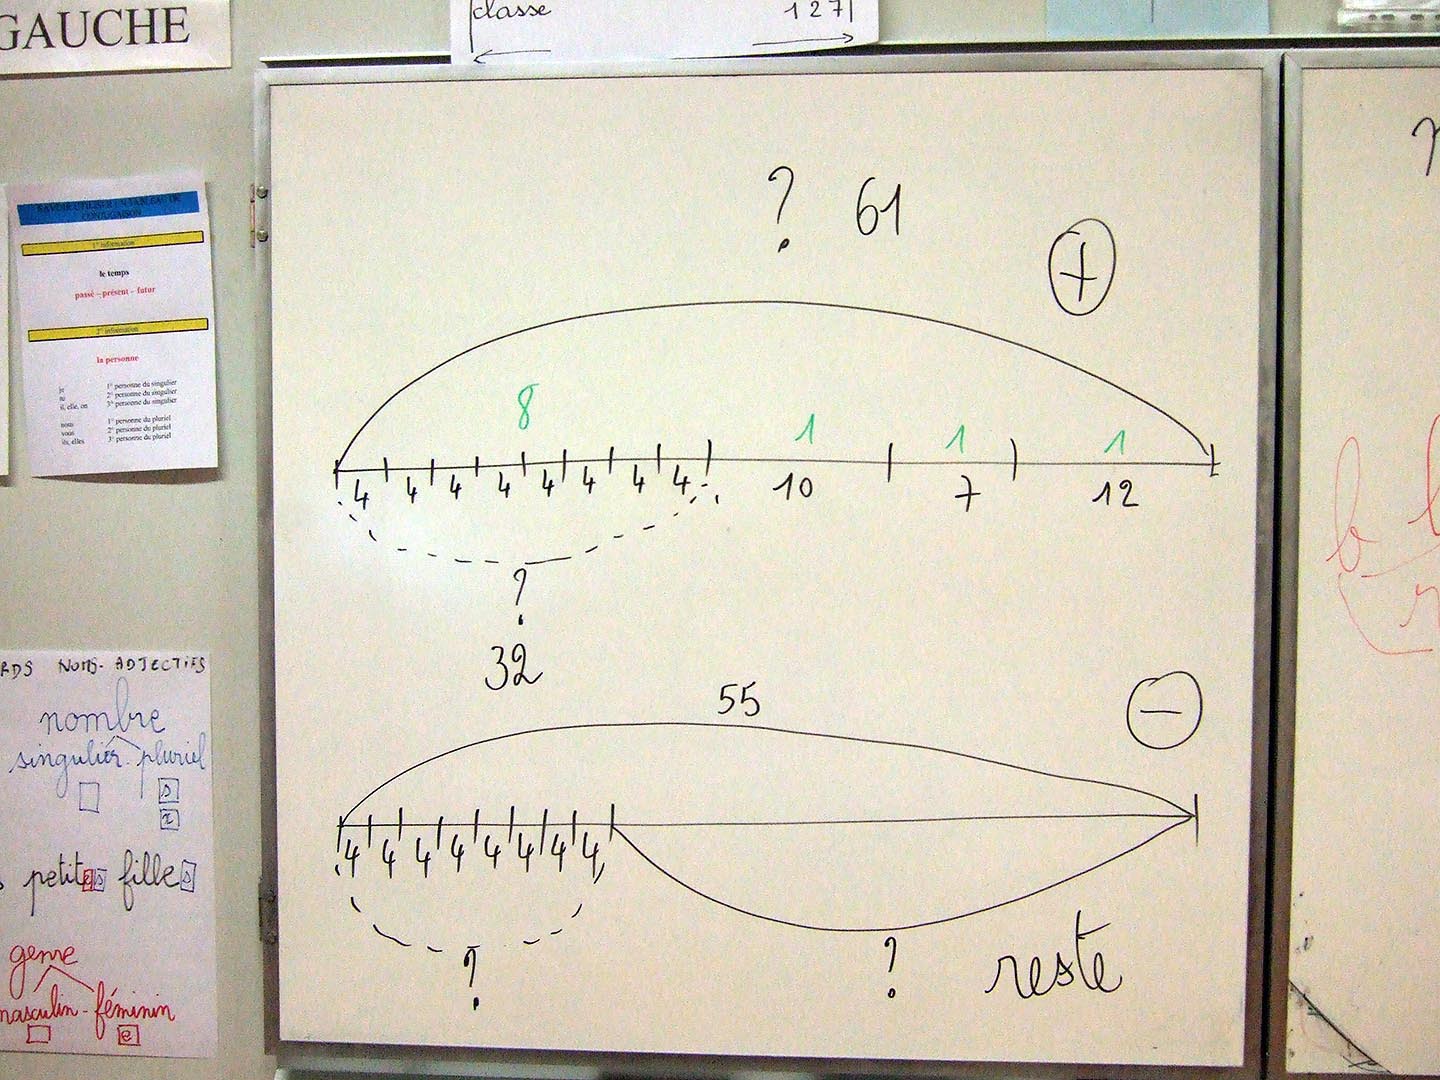 GAUCHE
classe 127
SAVOIR UTILISER UN TABLEAU DE
CONJUGAISON
1° information
le temps
passé – présent – futur
2° information
la personne
je 1° personne du singulier
tu 2° personne du singulier
il, elle, on 3° personne du singulier
nous 1° personne du pluriel
vous 2° personne du pluriel
ils, elles 3° personne du pluriel
RDS NOMS - ADJECTIFS
nombre
singulier - pluriel
s
x
s petites filles
genre
masculin - féminin
e
? 61
+
8 1 1 1
4 4 4 4 4 4 4 4 10 7 12
?
32
55
−
4 4 4 4 4 4 4 4
? ? reste